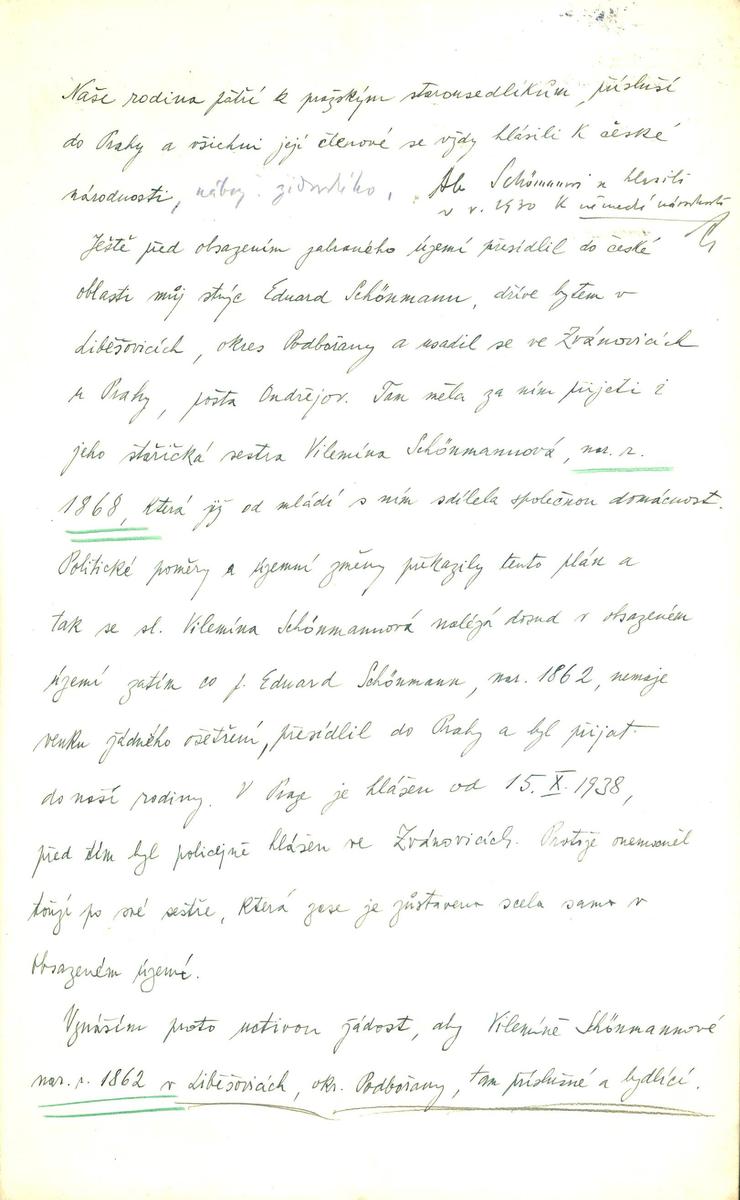 Naše rodina patří k pražským starousedlíkům, přísluší
do Prahy a všichni její členové se vždy hlásili k české
národnosti, nábož. židovského.
Ale Schönmannovi se hlásili
v r. 1930 k německé národnosti
Ještě před obsazením zabraného území přesídlil do české
oblasti můj strýc Eduard Schönmann, dříve bytem v
Liběšovicích, okres Podbořany a usadil se ve Zvánovicích
u Prahy, pošta Ondřejov. Tam měla za ním přijeti i
jeho stařičká sestra Vilemína Schönmannová, nar. r.
1868, která již od mládí s ním sdílela společnou domácnost.
Politické poměry a územní změny překazily tento plán a
tak se sl. Vilemína Schönmannová nalézá dosud v obsazeném
území zatím co p. Eduard Schönmann, nar. 1862, nemaje
venku žádného ošetření, přesídlil do Prahy a byl přijat
do naší rodiny. V Praze je hlášen od 15. X. 1938,
před tím byl policejně hlášen ve Zvánovicích. Protože onemocněl
touží po své sestře, která zase je zůstavena scela sama v
obsazeném území.
Vznáším proto uctivou žádost, aby Vilemíně Schönmannové
nar. r. 1862 v Liběšovicích, okr. Podbořany, tam příslušné a bydlící.